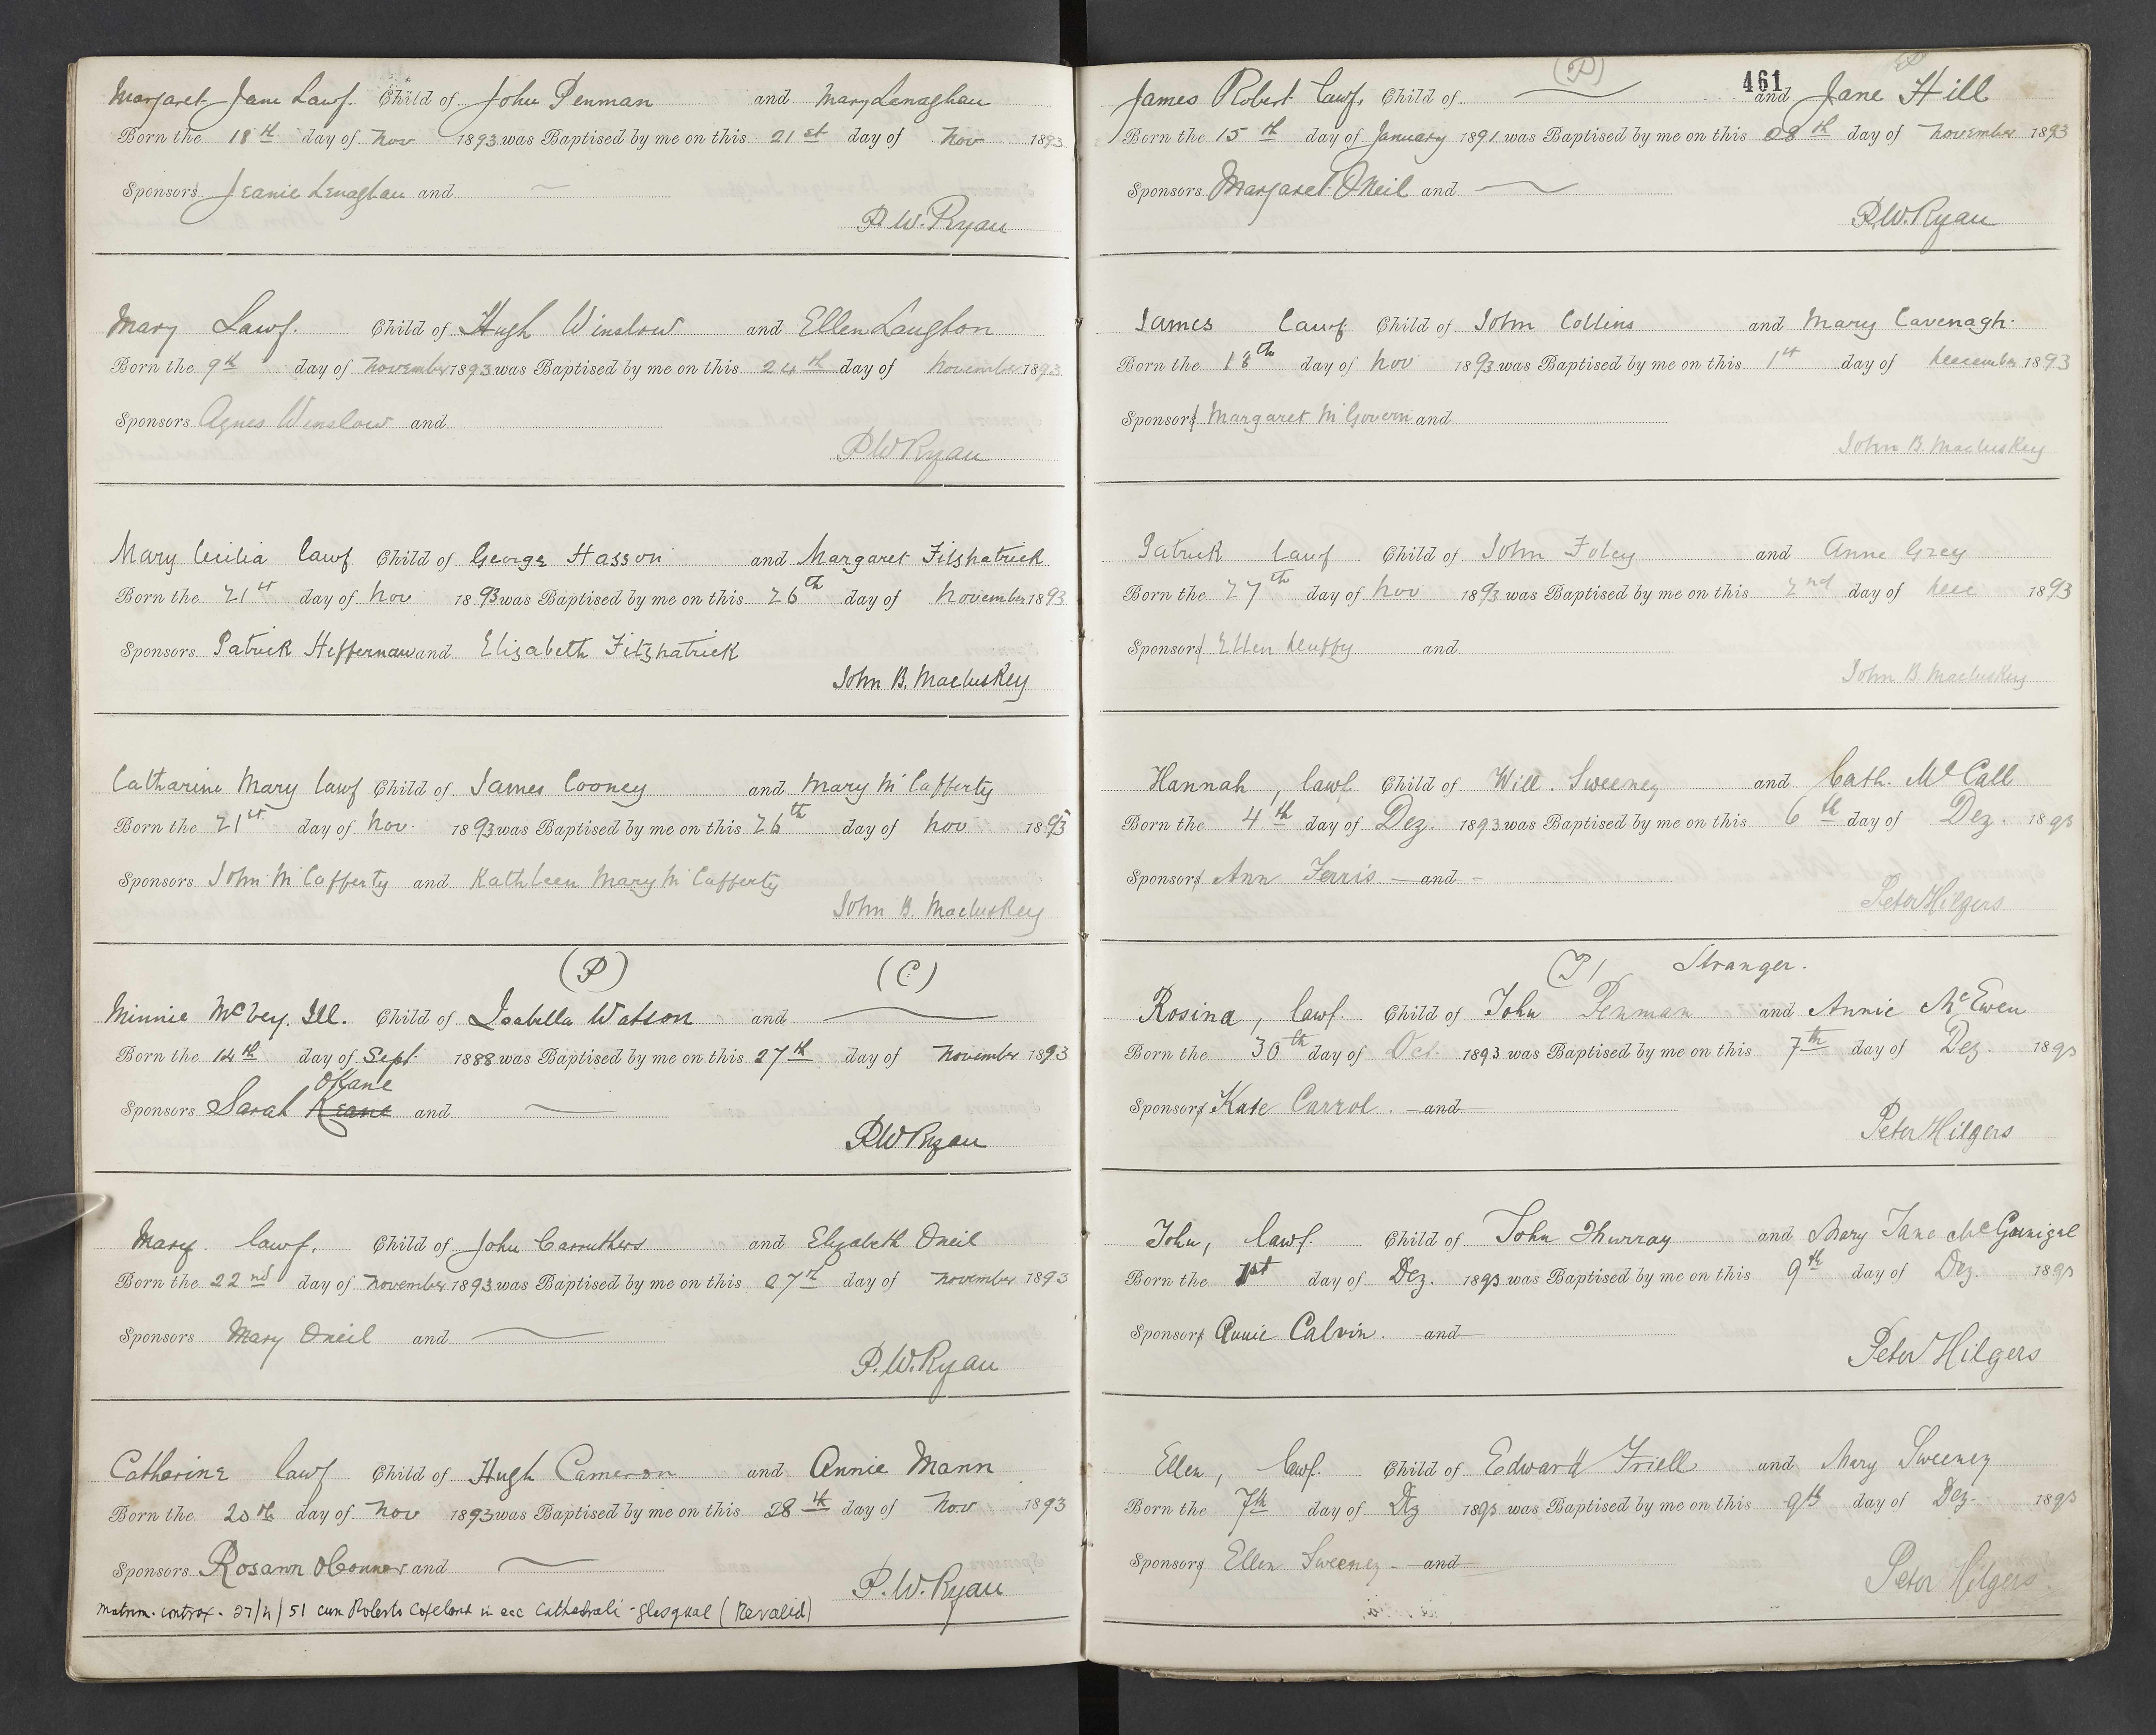 Margaret Jane Lawf. Child of John Penman and Mary Lenaghan
Born the 18th day of Nov 1893 was Baptised by me on this 21st day of Nov 1893
Sponsors Jeanie Lenaghan and
P. W. Ryan
Mary Lawf. Child of Hugh Winslow and Ellen Laughton
Born the 9th day of November 1893 was Baptised by me on this 24th day of November 1893
Sponsors Agnes Winslow and
P W Ryan
Mary Cecilia lawf Child of George Hasson and Margaret Fitzpatrick
Born the 21st day of Nov 1893 was Baptised by me on this 26th day of November 1893
Sponsors Patrick Heffernan and Elizabeth Fitzpatrick
John B. Macluskey
Catharine Mary lawf Child of James Cooney and Mary McCafferty
Born the 21st day of Nov 1893 was Baptised by me on this 26th day of Nov 1893
Sponsors John McCafferty and Kathleen Mary McCafferty
John B. Macluskey
(P) (C)
Minnie McVey. Ill. Child of Isabella Watson and
Born the 14th day of Sept 1888 was Baptised by me on this 27th day of November 1893
OKane
Sponsors Sarah Keane and
P W Ryan
Mary lawf. Child of John Carruthers and Elizabeth Oneil
Born the 22nd day of November 1893 was Baptised by me on this 27th day of November 1893
Sponsors Mary Oneil and
P. W. Ryan
Catherine lawf Child of Hugh Cameron and Annie Mann
Born the 20th day of Nov 1893 was Baptised by me on this 28th day of Nov 1893
Sponsors Rosann OConnor and
P. W. Ryan
Matrim. contrax. 27/4/51 cum Roberto Copeland in ecc Cathedrali - Glasguae (Revalid)
461
(P) P
James Robert lawf. Child of and Jane Hill
Born the 15th day of January 1891 was Baptised by me on this 28th day of November 1893
Sponsors Margaret ONeil and
P. W. Ryan
James lawf Child of John Collins and Mary Cavenagh
Born the 18th day of Nov 1893 was Baptised by me on this 1st day of December 1893
Sponsors Margaret McGovern and
John B. Macluskey
Patrick lawf Child of John Foley and Anne Grey
Born the 27th day of Nov 1893 was Baptised by me on this 2nd day of Dec 1893
Sponsors Ellen Duffy and
John B. Macluskey
Hannah, lawf. Child of Will. Sweeney and Cath. McCall
Born the 4th day of Dez. 1893 was Baptised by me on this 6th day of Dez. 1893
Sponsors Ann Ferris and
Peter Hilgers
(P) Stranger.
Rosina, lawf. Child of John Penman and Annie McEwen
Born the 30th day of Oct. 1893 was Baptised by me on this 7th day of Dez. 1893
Sponsors Kate Carrol. and
Peter Hilgers
John, lawf. Child of John Murray and Mary Jane McGonigal
Born the 1st day of Dez. 1893 was Baptised by me on this 9th day of Dez. 1893
Sponsors Annie Calvin. and
Peter Hilgers
Ellen, lawf. Child of Edward Friell and Mary Sweeney
Born the 7th day of Dez 1893 was Baptised by me on this 9th day of Dez. 1893
Sponsors Ellen Sweeney and
Peter Hilgers